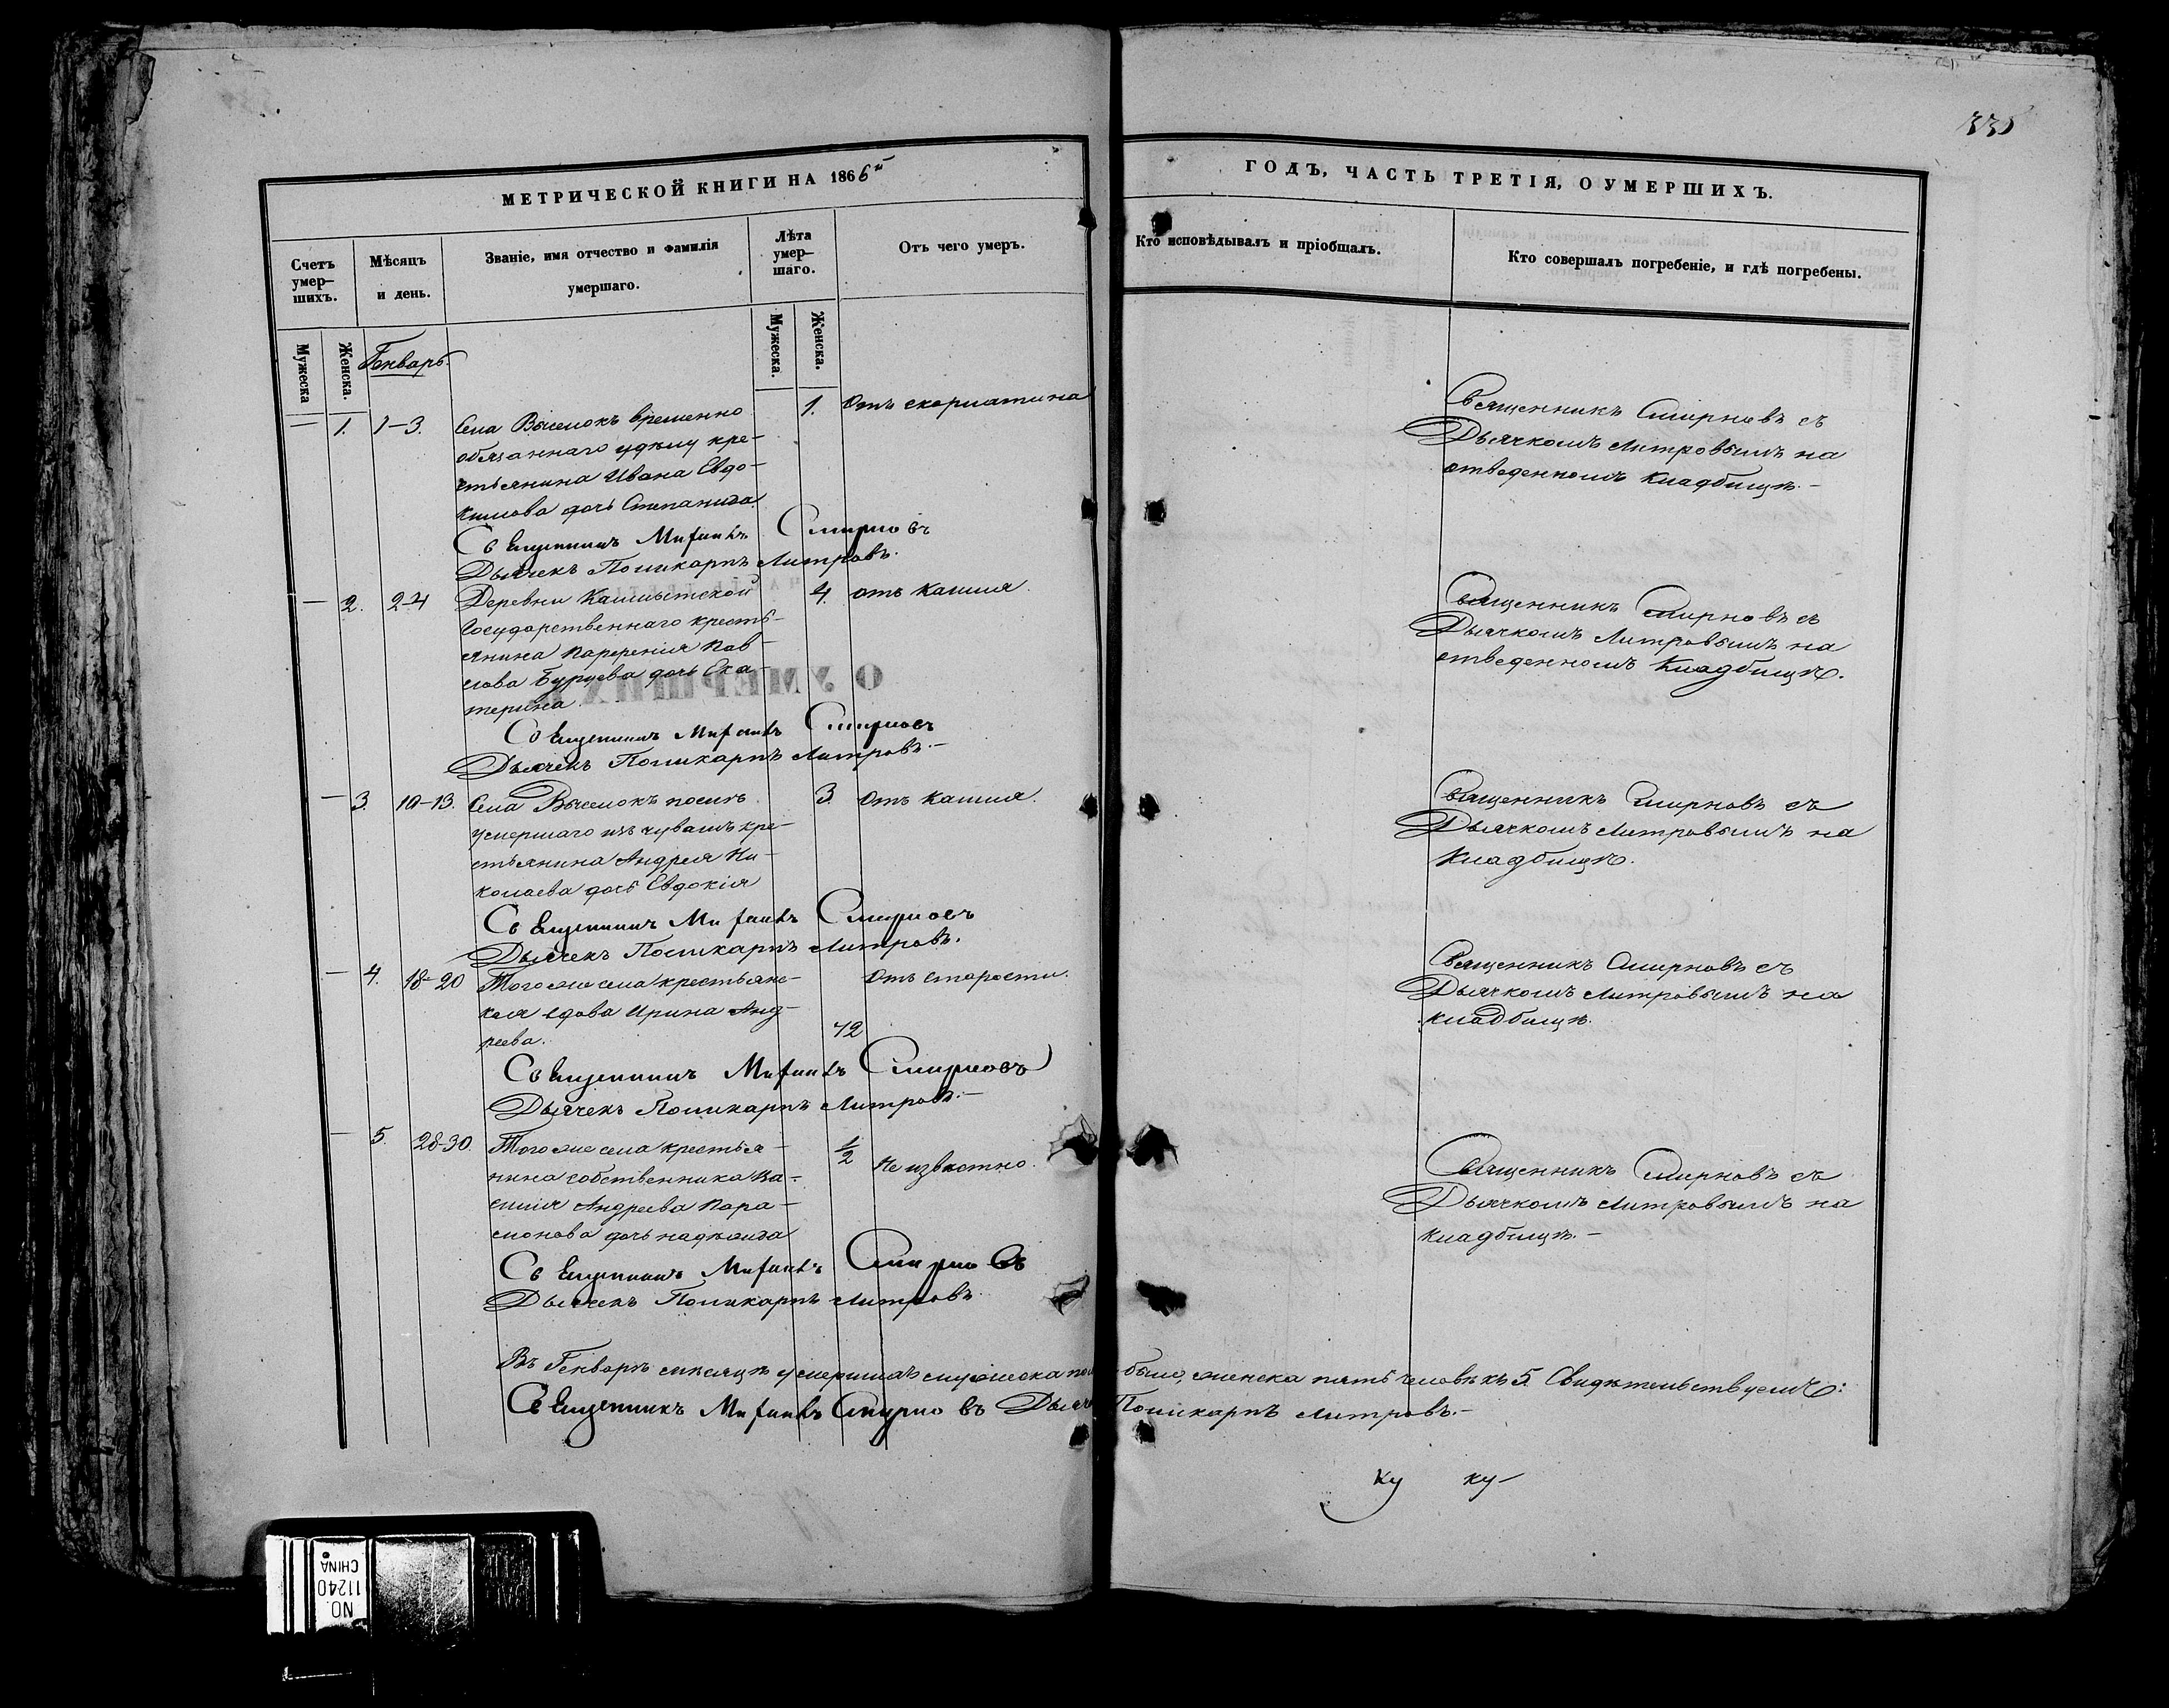 335
МЕТРИЧЕСКОЙ КНИГИ НА 1866й
ГОДЪ, ЧАСТЬ ТРЕТІЯ, О УМЕРШИХЪ.
Счетъ умер-
шихъ.
Мѣсяцъ
и день.
Званіе, имя отчество и фамилія
умершаго.
Лѣта
умер-
шаго.
Отъ чего умеръ.
Кто исповѣдывалъ и пріобщалъ.
Кто совершалъ погребеніе, и гдѣ погребены.
Мужеска
Женска.
Генварь.
Мужеска.
Женска.
— 1. 1-3. Села Выселокъ временно
обязаннаго удѣлу кре-
стьянина Ивана Евдо-
кимова дочь Степанида.
1. Отъ скорлатина
Священникъ Смирновъ съ
Дьячкомъ Митровымъ на
отведенномъ кладбищѣ.-
Священникъ Смирновъ
Дьячекъ Поликарпъ Митровъ.
— 2. 2-4 Деревни
Государственнаго кресть-
янина Парфенія Пав-
лова Бурцева дочь Ека-
терина.
4. отъ кашля.
Священникъ Смирновъ съ
Дьячкомъ Митровымъ на
отведенномъ кладбищѣ.
Священникъ Смирновъ
Дьячекъ Поликарпъ Митровъ.-
— 3. 10-13. Села Выселокъ послѣ
умершаго изъ чувашъ кре-
стьянина Андрея Ни-
колаева дочь Евдокія
3. Отъ кашля.
Священникъ Смирновъ съ
Дьячкомъ Митровымъ на
кладбищѣ.
Священникъ Смирновъ
Дьячекъ Поликарпъ Митровъ.
— 4. 18-20 Того же села крестьянс-
кая вдова Ирина Анд-
реева.
72
Отъ старости.
Священникъ Смирновъ съ
Дьячкомъ Митровымъ на
кладбищѣ.
Священникъ Смирновъ
Дьячекъ Поликарпъ Митровъ.-
— 5. 28-30. Того же села крестья-
нина собственника Ва-
силія Андреева Пара-
монова дочь надѣжида
1/2 Неизвѣстно.
Священникъ Смирновъ съ
Дьячкомъ Митровымъ на
кладбищѣ.-
Священникъ Смирновъ
Дьячекъ Поликарпъ Митровъ
Въ Генварѣ мѣсяцѣ умершихъ мужеска было, женска пять человѣкъ 5. Свидѣтельствуемъ:
Священникъ Смирновъ Поликарпъ Митровъ.-
О УМЕРШИХЪ
NO.
11240
CHINA